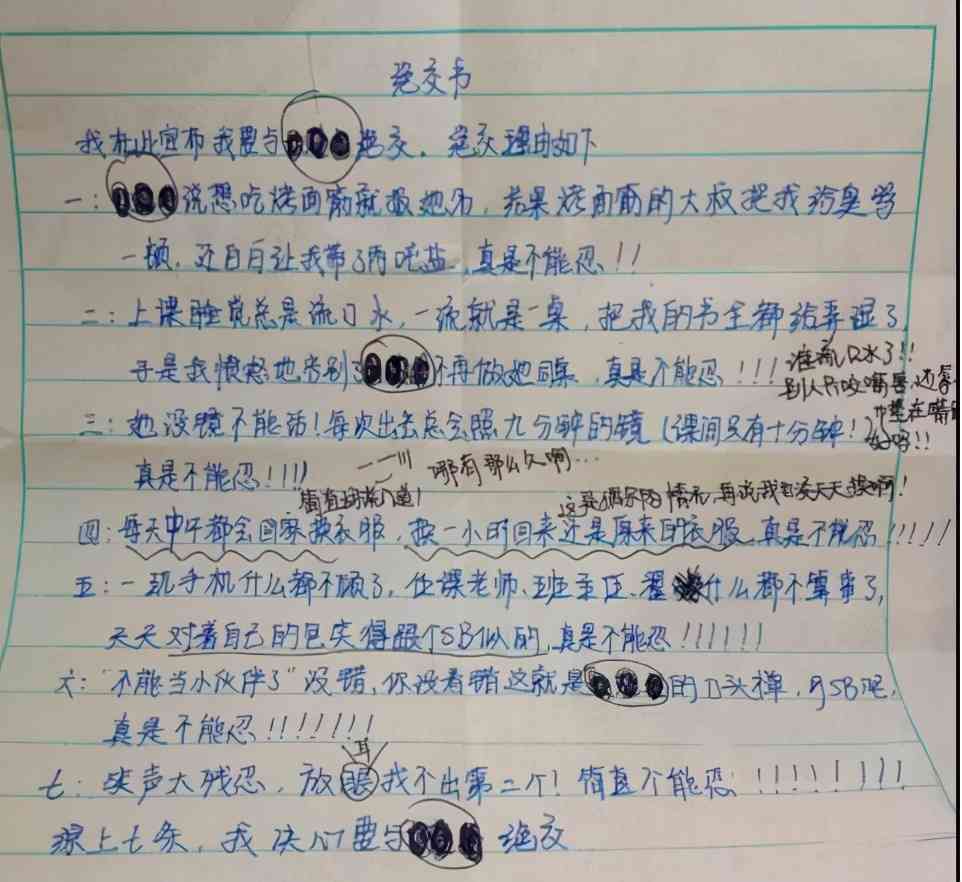 绝交书
我在此宣布我要与绝交。绝交理由如下
一：说想吃烤面筋就报她名，结果烤面筋的大叔把我给臭骂
一顿，还白白让我带了两吨盐，真是不能忍！！
二：上课睡觉总是流口水，一流就是一桌，把我的书全都给弄湿了，
于是我愤怒地告别了不再做她同桌，真是不能忍！！！
谁流口水了！！
别人只咬嘴唇，还
垫在嘴
好吗！！
三：她没镜不能活！每次出去总会照九分钟的镜（课间只有十分钟！）
真是不能忍！！！！
哪有那么久啊…
简直胡说八道！
这是偶尔的情况，再说我也没天天换啊！
四：每天中午都会回家换衣服，换一小时回来还是原来的衣服，真是不能忍！！！！！
五：一玩手机什么都不顾了，任课老师、班主任、什么都不算事了，
天天对着自己的包笑得跟个SB似的，真是不能忍！！！！！！
六：“不能当小伙伴了”没错，你没看错这就是的口头禅，SB吧，
真是不能忍！！！！！！！
耳
七：笑声太残忍，放眼找不出第二个！简直不能忍！！！！！！！！
综上七条，我决心要与绝交